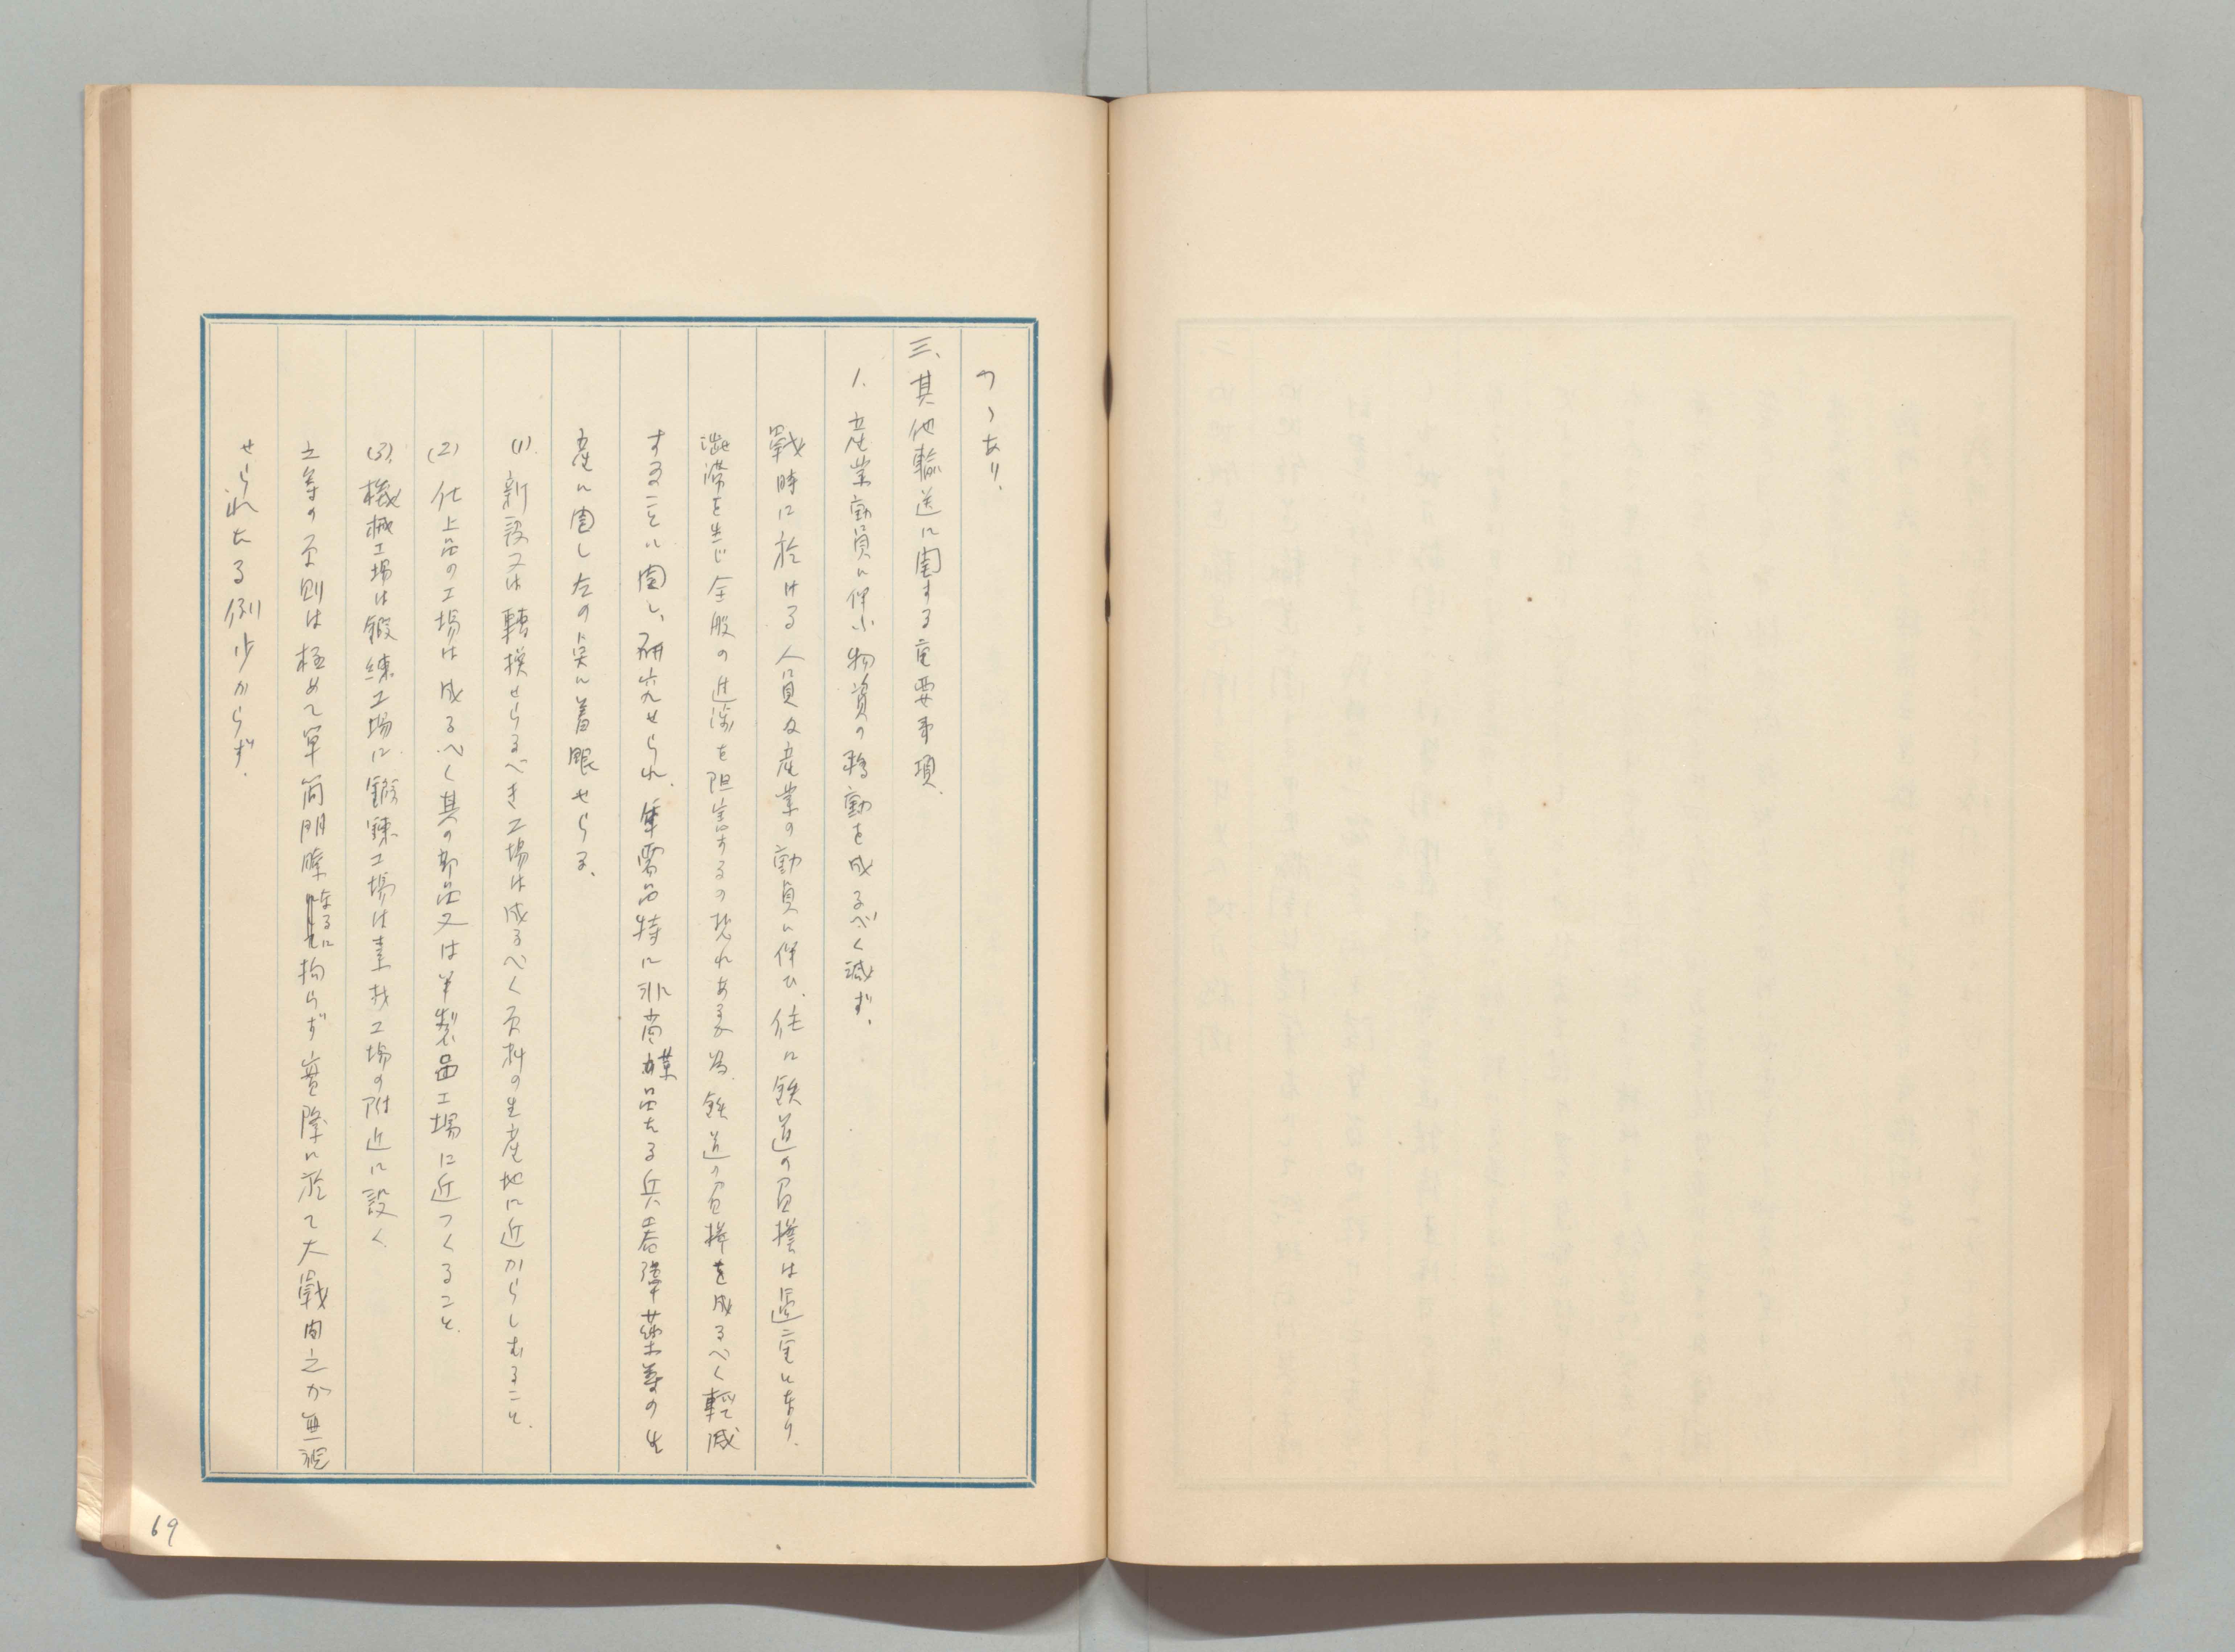 つゝあり.
三、其他輸送に関する重要事項.
1. 産業動員に伴ふ物資の移動を成るべく減ず.
戰時に於ける人員及産業の動員に伴ひ、往に鉄道の負擔は過重となり.
澁滞を生じ全般の進渉を阻害するの恐れある為、鉄道の負擔を成るべく軽減
することに関し、研究せられ、軍需品特に非商業品たる兵器弾薬等の生
産に関し左の点に着眼せらる、
(1). 新設又は轉換せらるべき工場は成るべく原料の生産地に近からしむること.
(2) 仕上品の工場は成るべく其の部品又は半製品工場に近つくること.
(3). 機械工場は鍛練工場に鍛錬工場は素材工場の附近に設く
之等の原則は極めて單簡明瞭なるに拘らず實際に於て大戰間之が無視
せられたる例少からず.
69